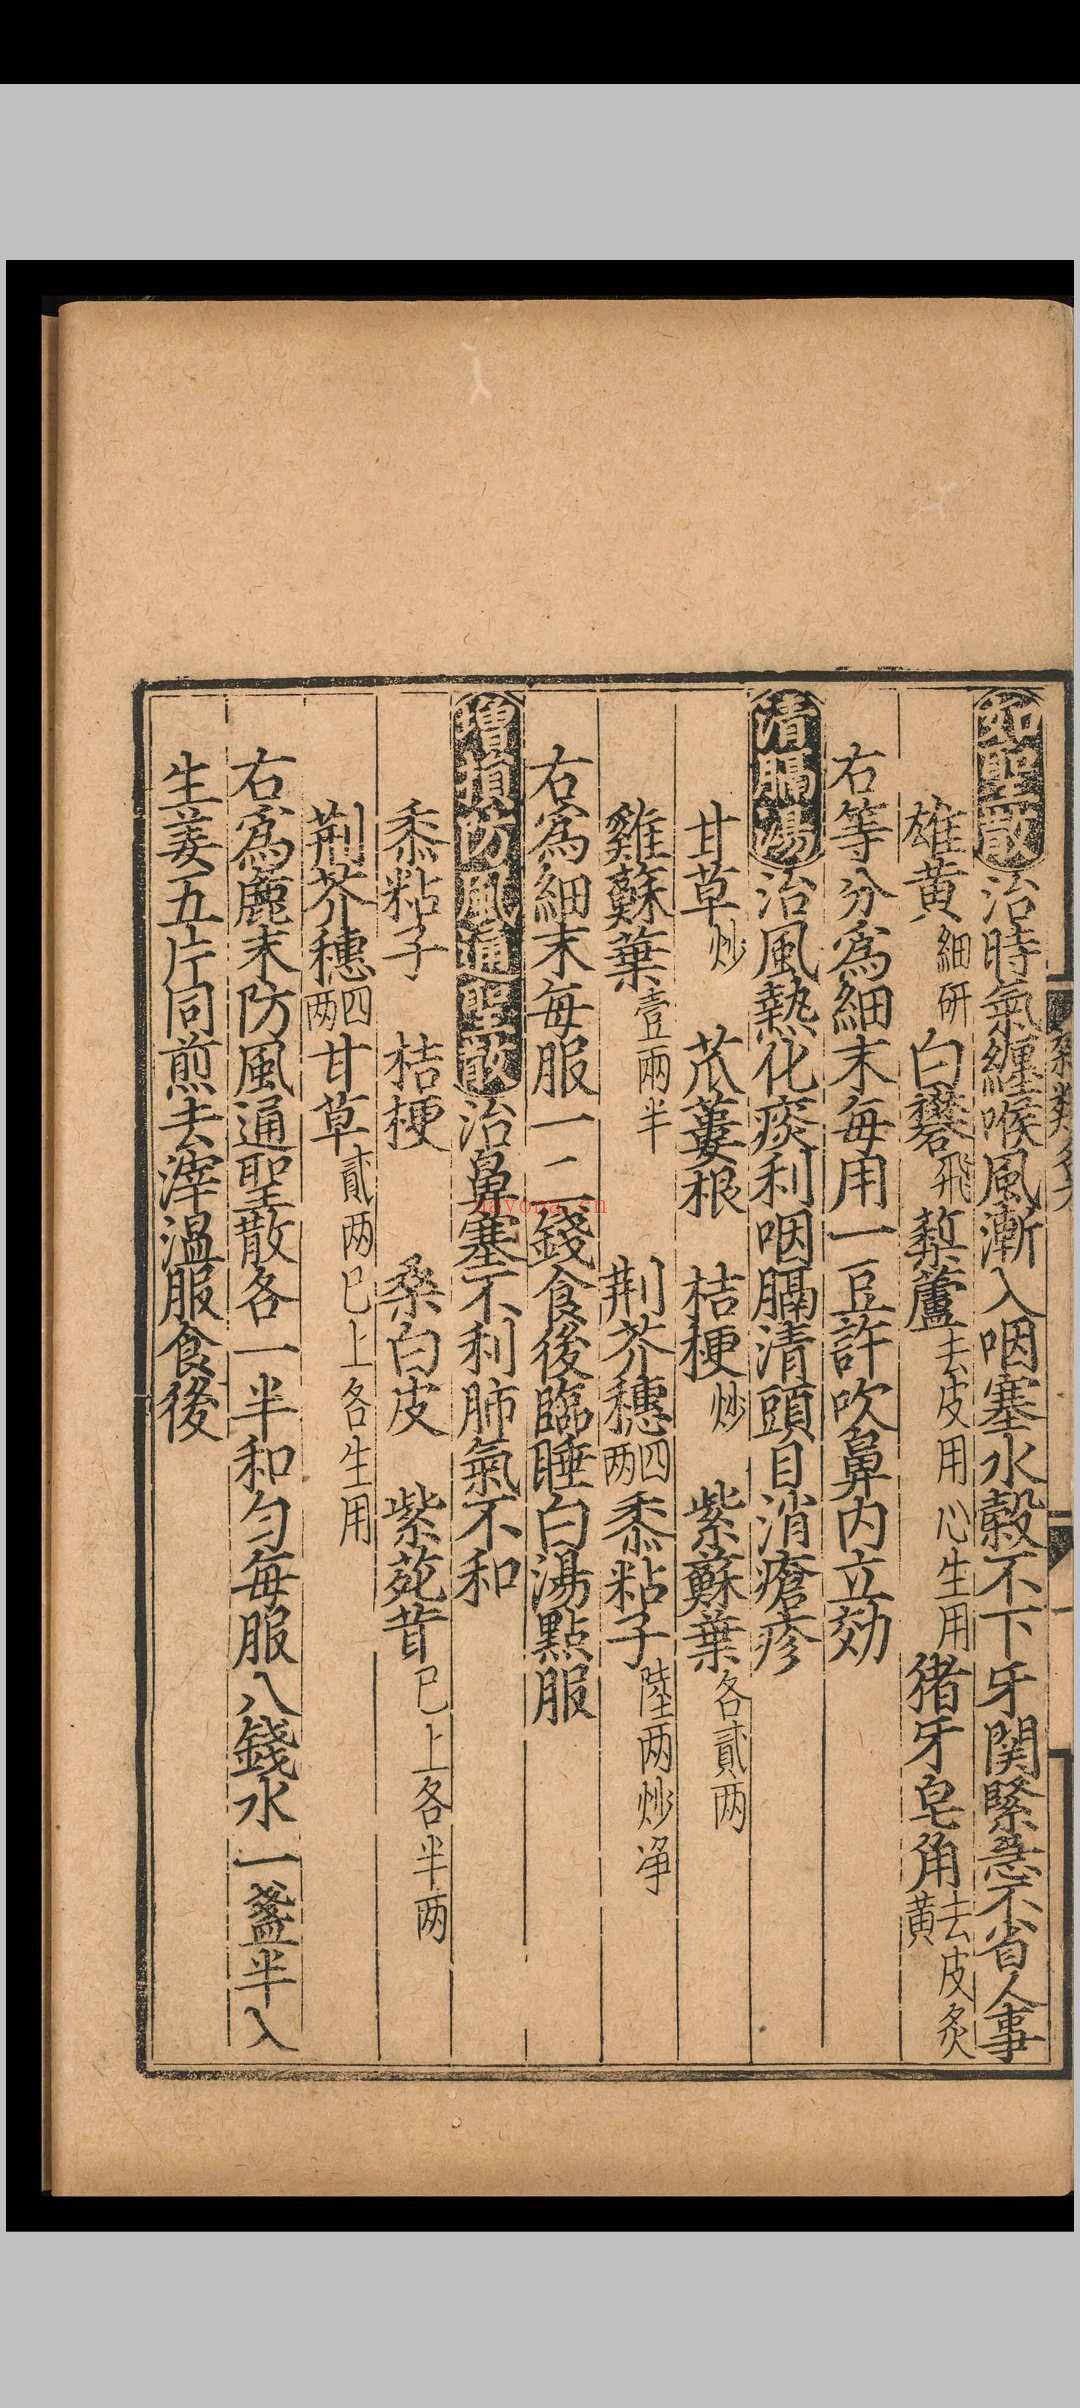 如聖散治時氣纏喉風漸入咽塞水穀不下牙関緊急不省人事
雄黄細研白礬飛藜蘆去皮用心生用猪牙皂角去皮炙黄
右等分為細末每用一豆許吹鼻内立効
清膈湯治風熱化痰利咽膈清頭目消瘡疹
甘草炒 苽蔞根 桔梗炒 紫蘇葉各貳两
雞蘇葉壹兩半 荆芥穗四两黍粘子陸两炒净
右為細末每服一二錢食後臨睡白湯點服
增損防風通聖散治鼻塞不利肺氣不和
黍粘子 桔梗 桑白皮 紫菀茸已上各半两
荆芥穗四两甘草貳两已上各生用
右為麄末防風通聖散各一半和匀每服八錢水一盞半入
生姜五片同煎去滓温服食後
nayona.cn